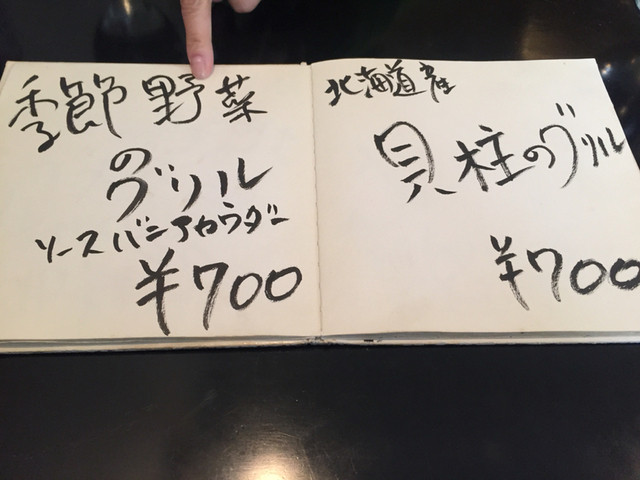 季節野菜
のグリル
ソースバーニアカウダー
¥700
北海道産
貝柱のグリル
¥700